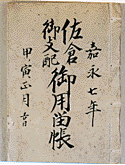 嘉永七年
佐倉
御支配
御用留帳
甲寅正月吉日